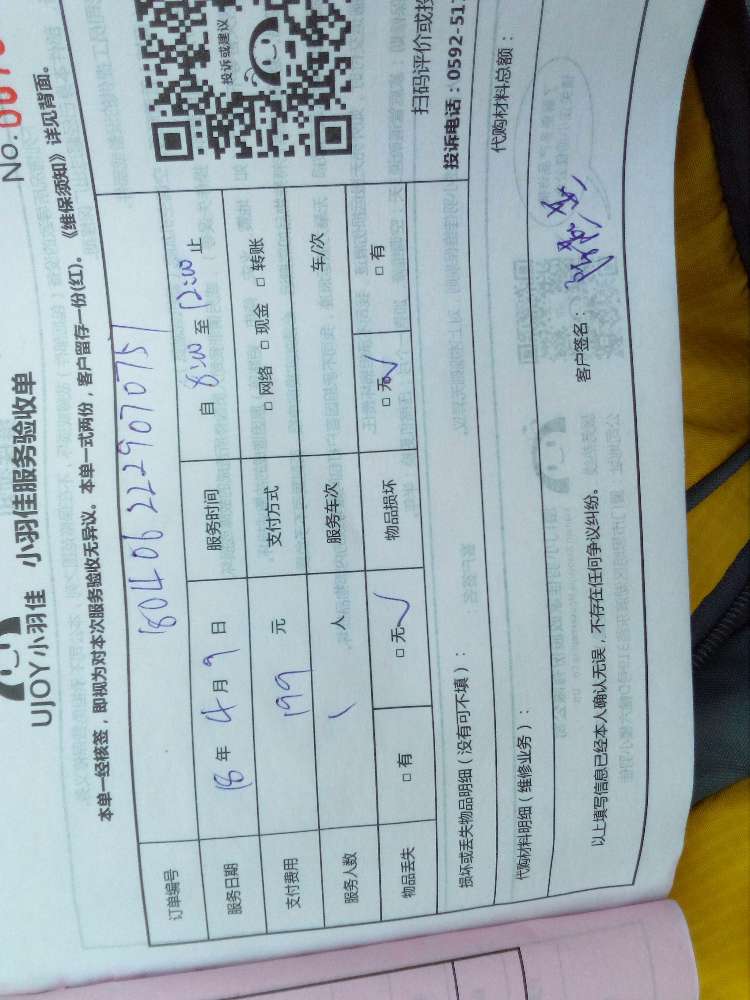 No. 0070
UJOY小羽佳 小羽佳服务验收单
本单一经核签，即视为对本次服务验收无异议。本单一式两份，客户留存一份(红)。《维保须知》详见背面。
订单编号 180406222907075751
服务日期 18 年 4 月 9 日 服务时间 自 8:00 至 12:00 止
支付费用 199 元 支付方式 □ 网络 □ 现金 □ 转账
服务人数 1 人 服务车次 车/次
物品丢失 □ 有 □ 无 ✓ 物品损坏 □ 无 ✓ □ 有
投诉或建议
扫码评价或投
投诉电话：0592-517
损坏或丢失物品明细（没有可不填）：
代购材料明细（维修业务）： 代购材料总额：
以上填写信息已经本人确认无误，不存在任何争议纠纷。 客户签名：